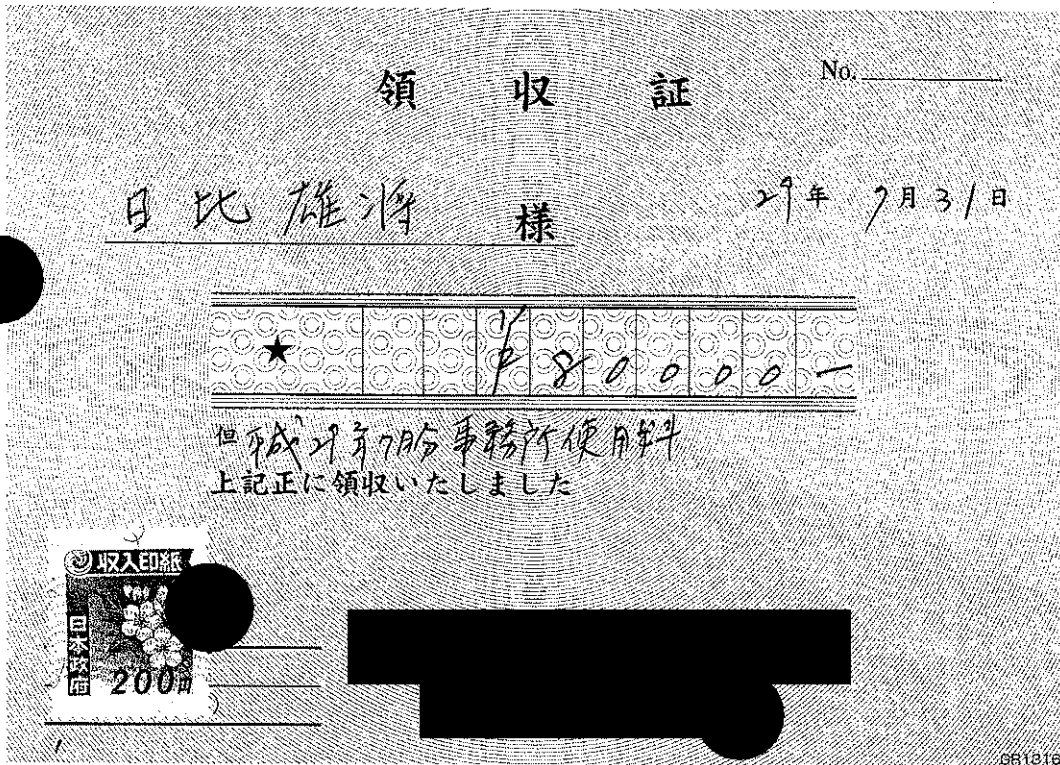 領収証
No.
日比雄将 様
29年 7月31日
★ ¥80000-
但 平成29年7月分事務所使用料
上記正に領収いたしました
収入印紙
日本政府
200円
GB1312